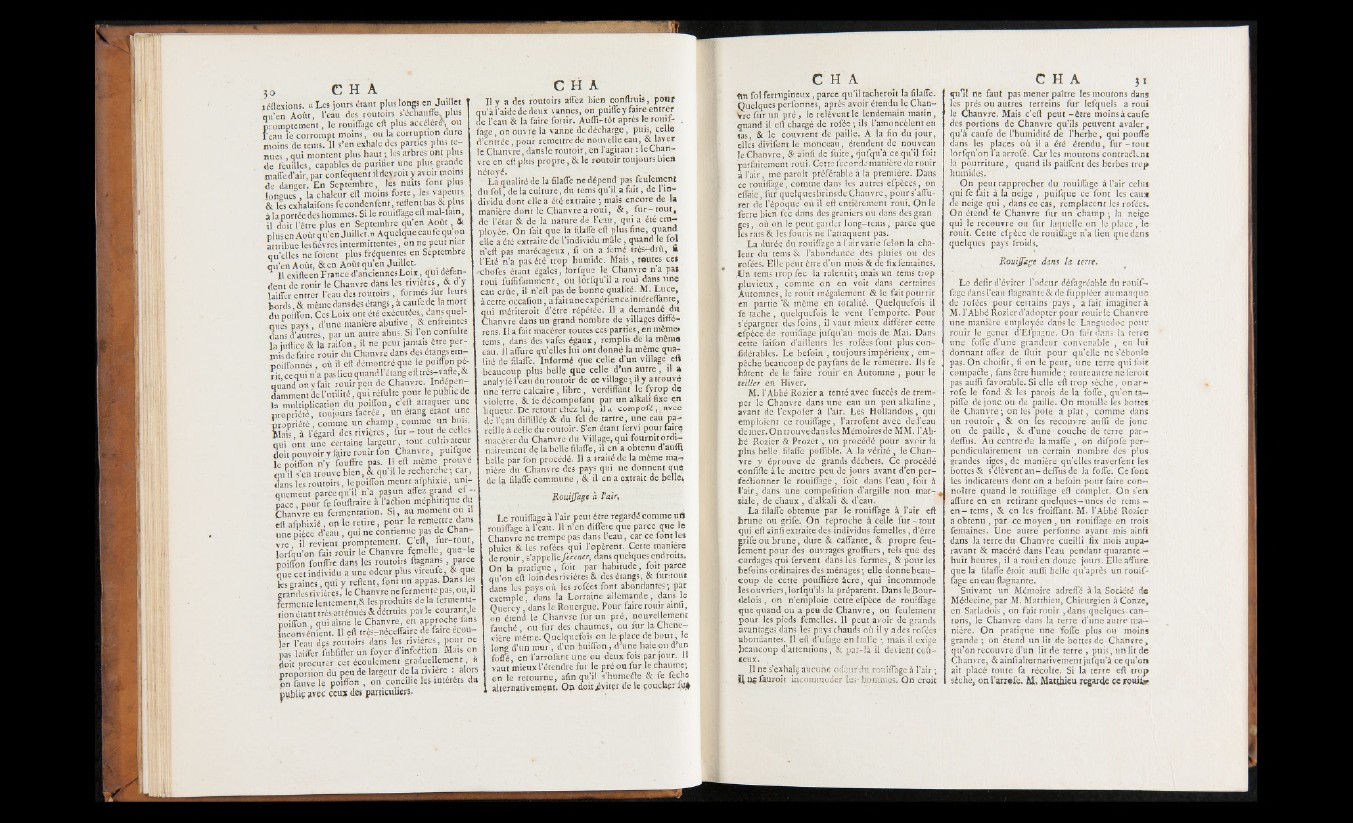 30 CHA
réflexions. « Les jours étant plus longs en Juillet
qu'en Août, l'eau des routoirs s'échauffe plus
promptement, le rouissage est plus accéléré, ou
l'eau se corrompt moins, ou la corruption dure
moins de tems. Il s'en exhale des parties plus te-
nues, qui montent plus haut ; les arbres ont plus
de feuilles, capables de purifier une plus grande
masse d'air, par conséquent il devroit y avoir moins
de danger. En Septembre, les nuits sont plus
longues, la chaleur est moins forte, les vapeurs
& les exhalaisons se condensent, restent bas & plus
à la portée des hommes. Si le rouissage est mal-sain,
il doit l'être plus en Septembre qu'en Août, &
plus en Août qu'en Juillet. » A quelque cause qu'on
attribue les fièvres intermittentes, on ne peut nier
qu'elles ne soient plus fréquentes en Septembre
qu'en Août, & en Août qu'en Juillet.
Il existe en France d'anciennes Loix, qui défen-
dent de rouir le Chanvre dans les rivières, & d'y
laisser entrer l'eau des routoirs, formés sur leurs
bords, & même dans des étangs, à cause de la mort
du poisson. Ces Loix ont été exécutées, dans quel-
ques pays, d'une manière abusive, & enfreintes
dans d'autres, par un autre abus. Si l'on consulte
la justice & la raison, il ne peut jamais être per-
mis de faire rouir du Chanvre dans des étangs em-
poissonnés, où il est démontré que le poisson pé-
rit, ce qui n'a pas lieu quand l'étang est très-vaste, &
quand on y fait rouir peu de Chanvre. Indépen-
damment de l'utilité, qui résulte pour le public de
la multiplication du poisson, c'est attaquer une
propriété, toujours sacrée, un étang étant une
propriété, comme un champ, comme un bois.
Mais, à l'égard des rivières, sur-tout de celles
qui ont une certaine largeur, tout cultivateur
doit pouvoir y faire rouir son Chanvre, puisque
le poisson n'y souffre pas. Il est même prouvé
qu'il s'en trouve bien, & qu'il le recherche ; car,
dans les routoirs, le poisson meurt asphixié, uni-
quement parce qu'il n'a pas un assez grand es-
pace, pour se soustraire à l'action méphitique du
Chanvre en fermentation. Si, au moment où il
est asphixié, on le retire, pour le remettre dans
une pièce d'eau, qui ne contienne pas de Chan-
vre, il revient promptement. C'est, sur-tout,
lorsqu'on fait rouir le Chanvre femelle, que le
poisson souffre dans les routoirs stagnans, parce
que cet individu a une odeur plus vireuse, & que
les graines, qui y restent, font un appas. Dans les
grandes rivières, le Chanvre ne fermente pas, ou, il
fermente lentement, & les produits de la fermenta-
tion étant très-atténués & détruits par le courant, le
poisson, qui aime le Chanvre, en approche sans
inconvénient. Il est très-nécessaire de faire écou-
ler l'eau des routoirs dans les rivières, pour ne
pas laisser subsister un foyer d'infection. Mais on
doit procurer cet écoulement graduellement, à
proportion du peu de largeur de la rivière : alors
on sauve le poisson, on concilie les intérêts du
public avec ceux des particuliers.
CHA
Il y a des routoirs assez bien construits, pour
qu'à l'aide de deux vannes, on puisse y faire entrer
de l'eau & la faire sortir. Aussi-tôt après le rouis-
sage, on ouvre la vanne de décharge, puis, celle
d'entrée, pour remettre de nouvelle eau, & laver
le Chanvre, dans le routoir, en l'agitant : le Chan-
vre en est plus propre, & le routoir toujours bien
nétoyé.
La qualité de la filasse ne dépend pas seulement
du sol, de la culture, du tems qu'il a fait, de l'in-
dividu dont elle a été extraite ; mais encore de la
manière dont le Chanvre a roui, &, sur-tout,
de l'état & de la nature de l'eau, qui a été em-
ployée. On sait que la filasse est plus fine, quand
elle a été extraite de l'individu mâle, quand le sol
n'est pas marécageux, si on a semé très-drû, si
l'Eté n'a pas été trop humide. Mais, toutes ces
choses étant égales, lorsque le Chanvre n'a pas
roui suffisamment, ou lorsqu'il a roui dans une
eau crûe, il n'est pas de bonne qualité. M. Luce,
à cette occasion, a fait une expérience intéressante,
qui mériteroit d'être répétée. Il a demandé du
Chanvre dans un grand nombre de villages diffé-
rens. Il a fait macérer toutes ces parties, en même-
tems, dans des vases égaux, remplis de la même
eau. Il assure qu'elles lui ont donné la même qua-
lité de filasse. Informé que celle d'un village est
beaucoup plus belle que celle d'un autre, il a
analysé l'eau du routoir de ce village ; il y a trouvé
une terre calcaire, libre, verdissant le syrop de
violette, & se décomposant par un alkali fixe en
liqueur. De retour chez lui, il a composé, avec
de l'eau distillée & du sel de tartre, une eau pa-
reille à celle du routoir. S'en étant servi pour faire
macérer du Chanvre du Village, qui fournit ordi-
nairement de la belle filasse, il en a obtenu d'aussi
belle par son procédé. Il a traité de la même ma-
nière du Chanvre des pays qui ne donnent que
de la filasse commune, & il en a extrait de belle.
Rouissage à l'air.
Le rouissage à l'air peut être regardé comme un
rouissage à l'eau. Il n'en diffère que parce que le
Chanvre ne trempe pas dans l'eau, car ce sont les
pluies & les rosées qui l'opèrent. Cette manière
de rouir, s'appelle serener, dans quelques endroits.
On la pratique, soit par habitude, soit parce
qu'on est loin des rivières & des étangs, & sur-tout
dans les pays où les rosées sont abondantes ; par
exemple, dans la Lorraine allemande, dans le
Quercy, dans le Rouergue. Pour faire rouir ainsi,
on étend le Chanvre sur un pré, nouvellement
fauché, ou sur des chaumes, ou sur la Chene-
vière même. Quelquefois on le place de bout, le
long d'un mur, d'un buisson, d'une haie ou d'un
fossé, en l'arrosant une ou deux fois par jour. Il
vaut mieux l'étendre sur le pré ou sur le chaume ;
on le retourne, afin qu'il s'humecte & se sèche
alternativement. On doit éviter de le coucher sur
CHA
un sol ferrugineux, parce qu'il tacheroit la filasse.
Quelques personnes, après avoir étendu le Chan-
vre sur un pré, le relèvent le lendemain matin,
quand il est chargé de rosée ; ils l'amoncèlent en
tas, & le couvrent de paille. A la fin du jour,
elles divisent le monceau, étendent de nouveau
le Chanvre, & ainsi de suite, jusqu'à ce qu'il soit
parfaitement roui. Cette seconde manière de rouir
à l'air, me paroît préférable à la première. Dans
ce rouissage, comme dans les autres espèces, on
essaie, sur quelques brins de Chanvre, pour s'assu-
rer de l'époque où il est entièrement roui. On le
serre bien sec dans des greniers ou dans des gran-
ges, où on le peut garder long-tems, parce que
les rats & les souris ne l'attaquent pas.
La durée du rouissage à l'air varie selon la cha-
leur du tems & l'abondance des pluies ou des
rosées. Elle peut être d'un mois & de six semaines.
Un tems trop sec la ralentit ; mais un tems trop
pluvieux, comme on en voit dans certaines
Automnes, le rouit inégalement & le fait pourrir
en partie & même en totalité. Quelquefois il
se tache, quelquefois le vent l'emporte. Pour
s'épargner des soins, il vaut mieux différer cette
espèce de rouissage jusqu'au mois de Mai. Dans
cette saison d'ailleurs les rosées sont plus con-
sidérables. Le besoin, toujours impérieux, em-
pêche beaucoup de paysans de le remettre. Ils se
hâtent de le faire rouir en Automne, pour le
teiller en Hiver.
M. l'Abbé Rozier a tenté avec succès de trem-
per le Chanvre dans une eau un peu alkaline,
avant de l'exposer à l'air. Les Hollandois, qui
emploient ce rouissage, l'arrosent avec de l'eau
de mer. On trouve dans les Mémoires de MM. l'Ab-
bé Rozier & Prozet, un procédé pour avoir la
plus belle filasse possible. A la vérité, le Chan-
vre y éprouve de grands déchets. Ce procédé
consiste à le mettre peu de jours avant d'en per-
fectionner le rouissage, soit dans l'eau, soit à
l'air, dans une composition d'argille non mar-
tiale, de chaux, d'alkali & d'eau.
La filasse obtenue par le rouissage à l'air est
brune ou grise. On reproche à celle sur-tout
qui est ainsi extraite des individus femelles, d'être
grise ou brune, dure & cassante, & propre seu-
lement pour des ouvrages grossiers, tels que des
cordages qui servent dans les fermes, & pour les
besoins ordinaires des ménages ; elle donne beau-
coup de cette poussière âcre, qui incommode
les ouvriers, lorsqu'ils la préparent. Dans le Bour-
delois, on n'emploie cette espèce de rouissage
que quand on a peu de Chanvre, ou seulement
pour les pieds femelles. Il peut avoir de grands
avantages dans les pays chauds où il y a des rosées
abondantes. Il est d'usage en Italie ; mais il exige
beaucoup d'attentions, & par-là il devient coû-
teux.
Il ne s'exhale aucune odeur du rouissage à l'air ;
il ne sauroit incommoder les hommes. On croit
CHA 31
qu'il ne faut pas mener paître les moutons dans
les prés ou autres terreins sur lesquels a roui
le Chanvre. Mais c'est peut-être moins à cause
des portions de Chanvre qu'ils peuvent avaler,
qu'à cause de l'humidité de l'herbe, qui pousse
dans les places où il a été étendu, sur-tout
lorsqu'on l'a arrosé. Car les moutons contractent
la pourriture, quand ils paissent des herbes trop
humides.
On peut rapprocher du rouissage à l'air celui
qui se fait à la neige, puisque ce sont les eaux
de neige qui, dans ce cas, remplacent les rosées.
On étend le Chanvre sur un champ ; la neige
qui le recouvre ou sur laquelle on le place, le
rouit. Cette espèce de rouissage n'a lieu que dans
quelques pays froids.
Rouissage dans la terre.
Le desir d'éviter l'odeur désagréable du rouis-
sage dans l'eau stagnante & de suppléer au manque
de rosées pour certains pays, a fait imaginer à
M. l'Abbé Rozier d'adopter pour rouir le Chanvre
une manière employée dans le Languedoc pour
rouir le genet d'Espagne. On fait dans la terre
une fosse d'une grandeur convenable, en lui
donnant assez de fruit pour qu'elle ne s'éboule
pas. On choisit, si on le peut, une terre qui soit
compacte, sans être humide ; toute autre ne seroit
pas aussi favorable. Si elle est trop sèche, on ar-
rose le fond & les parois de la fosse, qu'on ta-
pisse de jonc ou de paille. On mouille les bottes
de Chanvre ; on les pose à plat, comme dans
un routoir, & on les recouvre aussi de jonc
ou de paille, & d'une couche de terre par-
dessus. Au centre de la masse, on dispose per-
pendiculairement un certain nombre des plus
grandes tiges, de manière qu'elles traversent les
bottes & s'élèvent au-dessus de la fosse. Ce sont
les indicateurs dont on a besoin pour faire con-
noître quand le rouissage est complet. On s'en
assure en en retirant quelques-unes de tems-
en-tems, & en les froissant. M. l'Abbé Rozier
a obtenu, par ce moyen, un rouissage en trois
semaines. Une autre personne ayant mis ainsi
dans la terre du Chanvre cueilli six mois aupa-
ravant & macéré dans l'eau pendant quarante-
huit heures, il a roui en douze jours. Elle assure
que la filasse étoit aussi belle qu'après un rouis-
sage en eau stagnante.
Suivant un Mémoire adressé à la Société de
Médecine, par M. Matthieu, Chirurgien à Conze,
en Sarladois, on fait rouir, dans quelques can-
tons, le Chanvre dans la terre d'une autre ma-
nière. On pratique une fosse plus ou moins
grande ; on étend un lit de bottes de Chanvre,
qu'on recouvre d'un lit de terre, puis, un lit de
Chanvre, & ainsi alternativement jusqu'à ce qu'on
ait placé toute sa récolte. Si la terre est trop
sèche, on l'arrose. M. Matthieu regarde ce rouis-